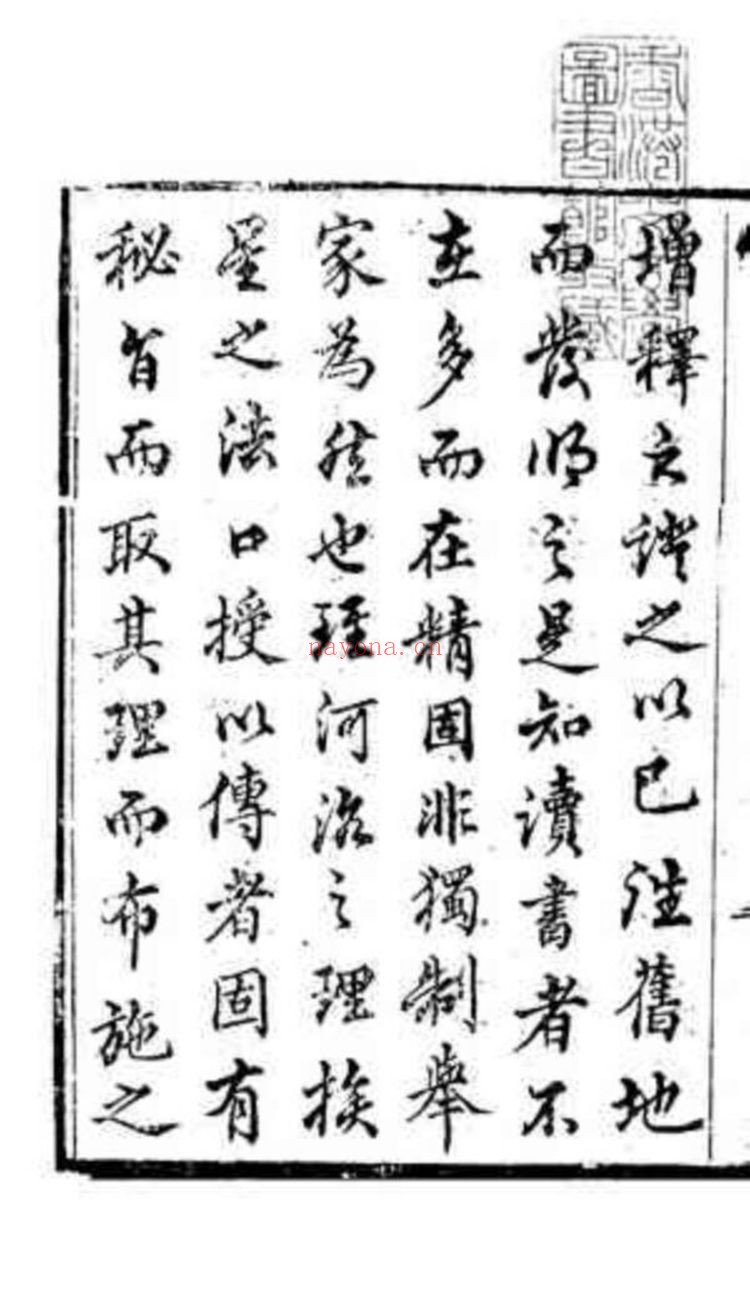 增釋之證之以已往舊地
而發明之是知讀書者不
在多而在精固非獨制舉
家為然也河洛之理挨
星之法口授以傳者固有
秘旨而取其理而布施之
香港
圖書館
nayona.cn